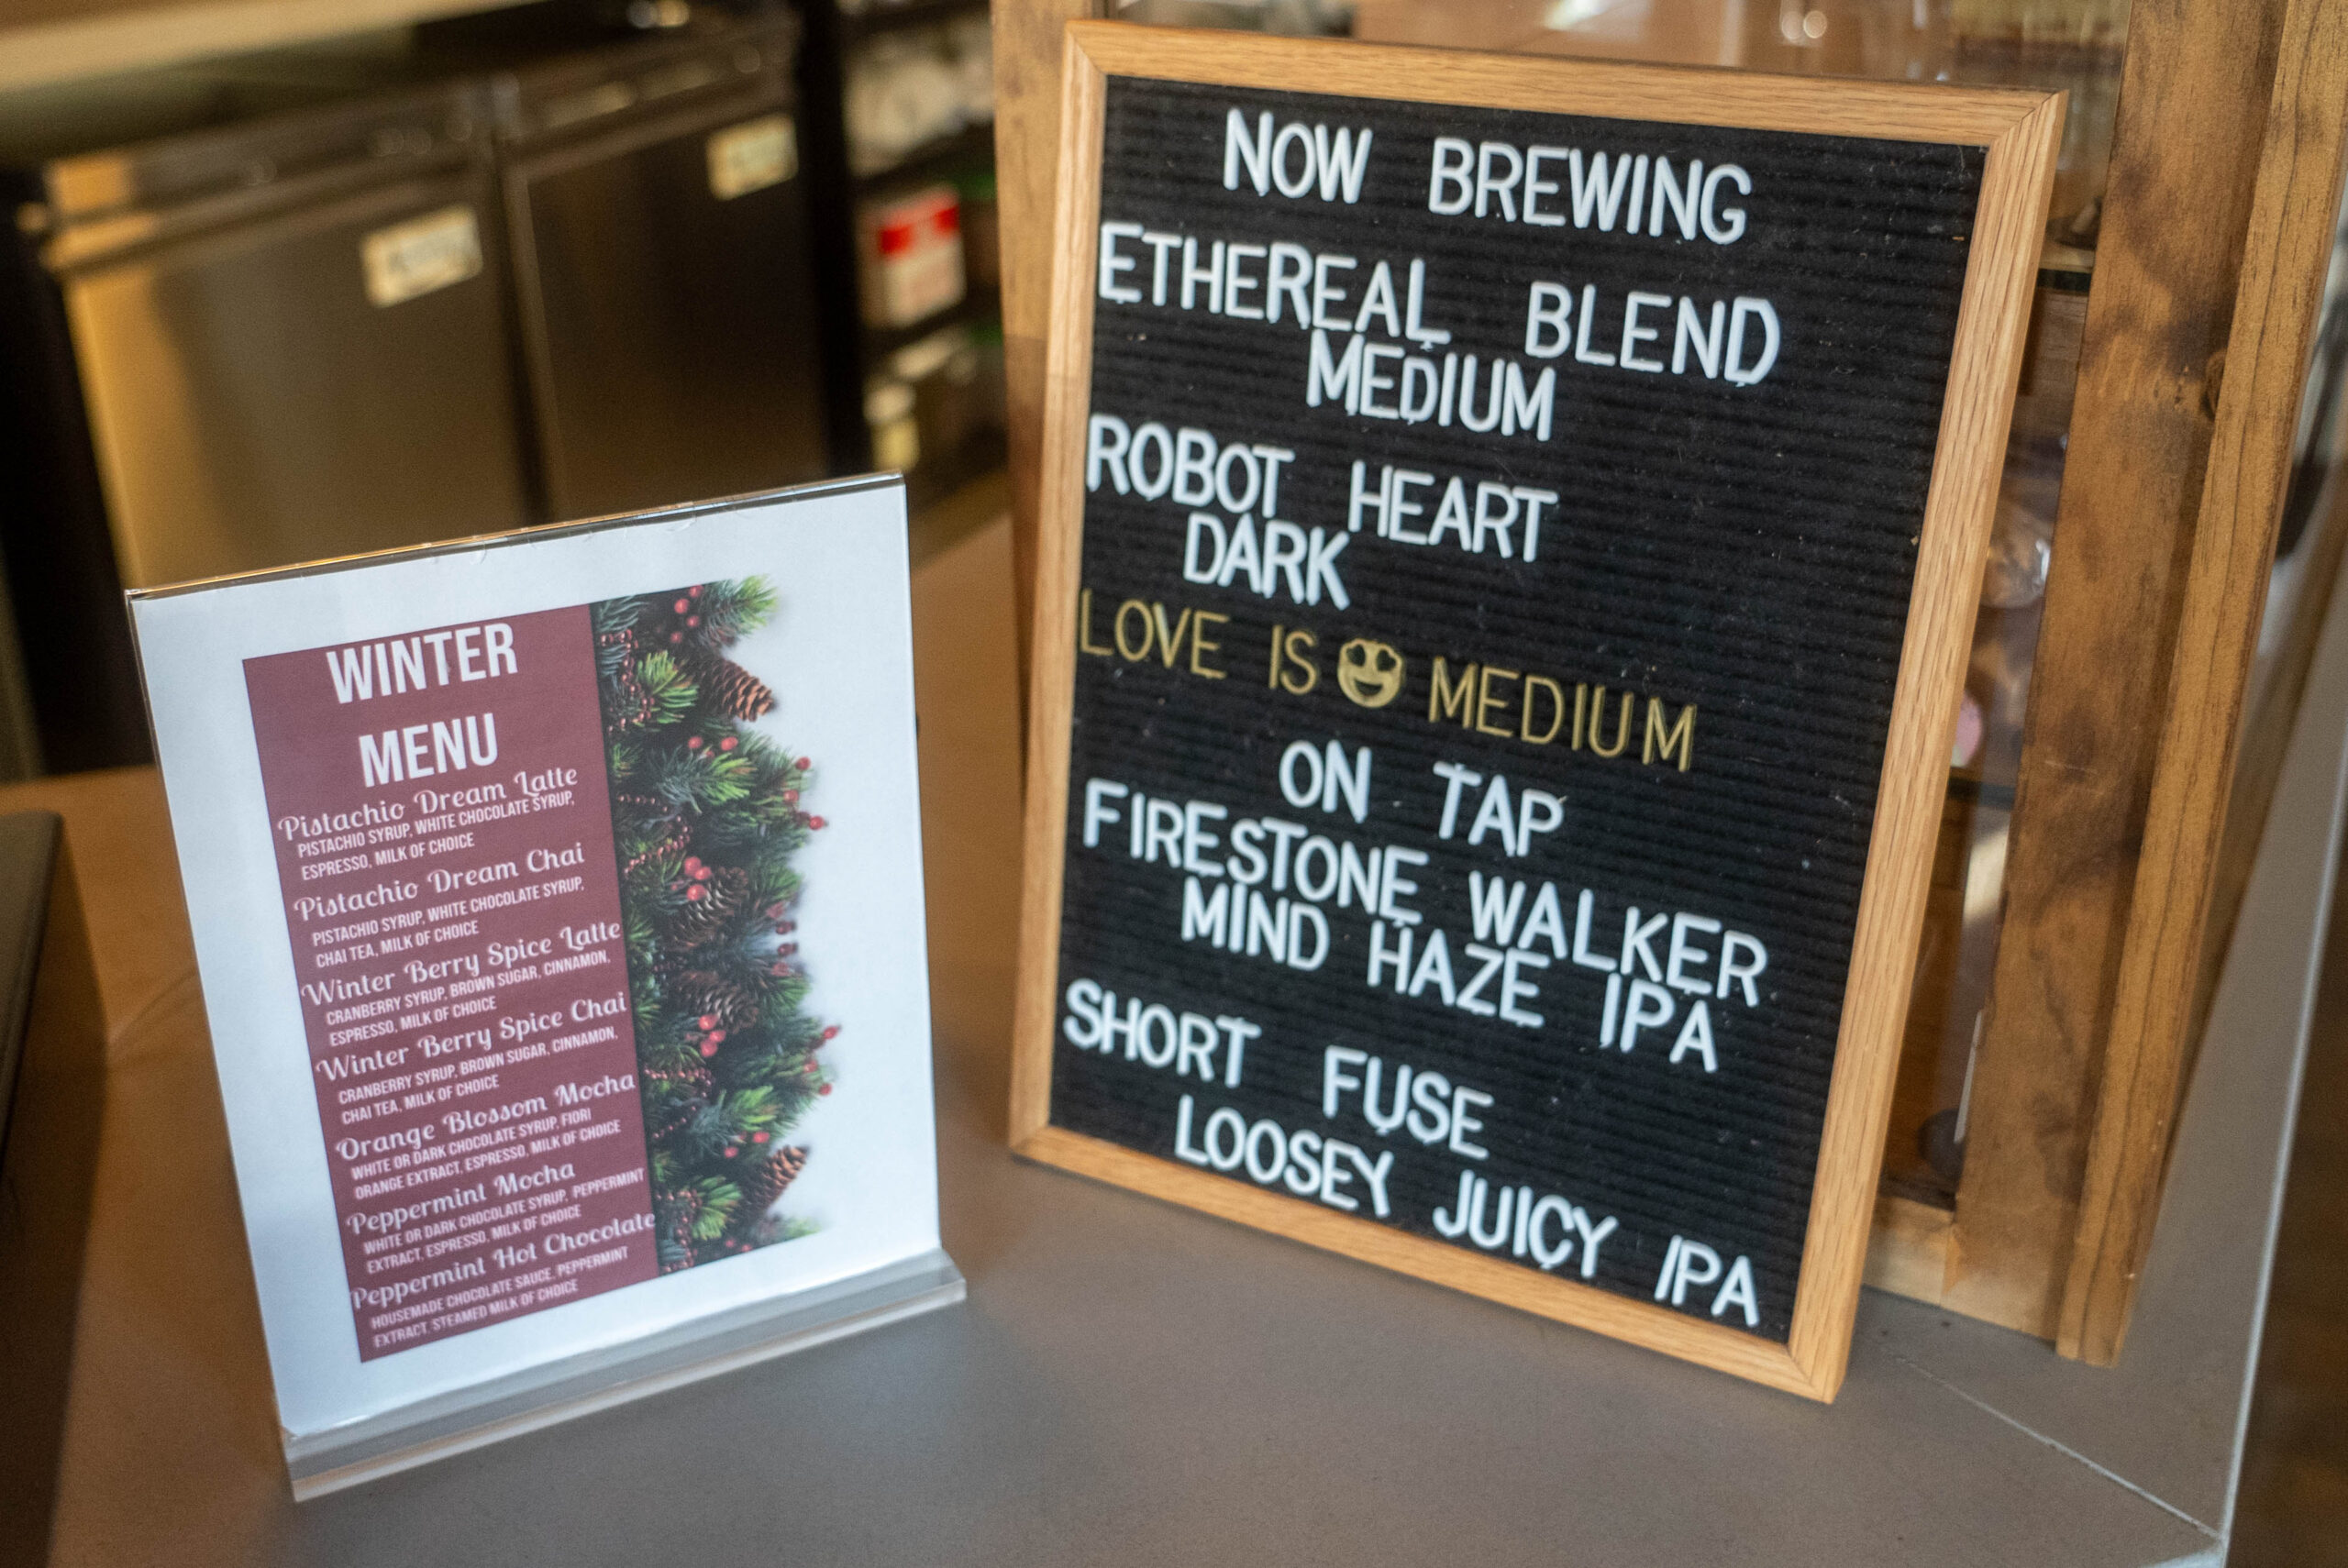 WINTER
MENU
Pistachio Dream Latte
PISTACHIO SYRUP, WHITE CHOCOLATE SYRUP,
ESPRESSO, MILK OF CHOICE
Pistachio Dream Chai
PISTACHIO SYRUP, WHITE CHOCOLATE SYRUP,
CHAI TEA, MILK OF CHOICE
Winter Berry Spice Latte
CRANBERRY SYRUP, BROWN SUGAR, CINNAMON,
ESPRESSO, MILK OF CHOICE
Winter Berry Spice Chai
CRANBERRY SYRUP, BROWN SUGAR, CINNAMON,
CHAI TEA, MILK OF CHOICE
Orange Blossom Mocha
WHITE OR DARK CHOCOLATE SYRUP, FIORI
ORANGE EXTRACT, ESPRESSO, MILK OF CHOICE
Peppermint Mocha
WHITE OR DARK CHOCOLATE SYRUP, PEPPERMINT
EXTRACT, ESPRESSO, MILK OF CHOICE
Peppermint Hot Chocolate
HOUSEMADE CHOCOLATE SAUCE, PEPPERMINT
EXTRACT, STEAMED MILK OF CHOICE
NOW BREWING
ETHEREAL BLEND
MEDIUM
ROBOT HEART
DARK
LOVE IS 🤩 MEDIUM
ON TAP
FIRESTONE WALKER
MIND HAZE IPA
SHORT FUSE
LOOSEY JUICY IPA